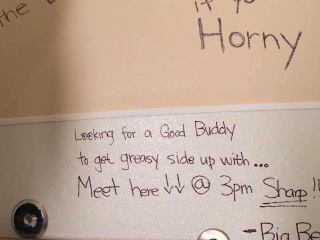 the
if yo
Horny
Looking for a Good Buddy
to get greasy side up with...
Meet here ↓↓ @ 3pm Sharp!!
- Big Be